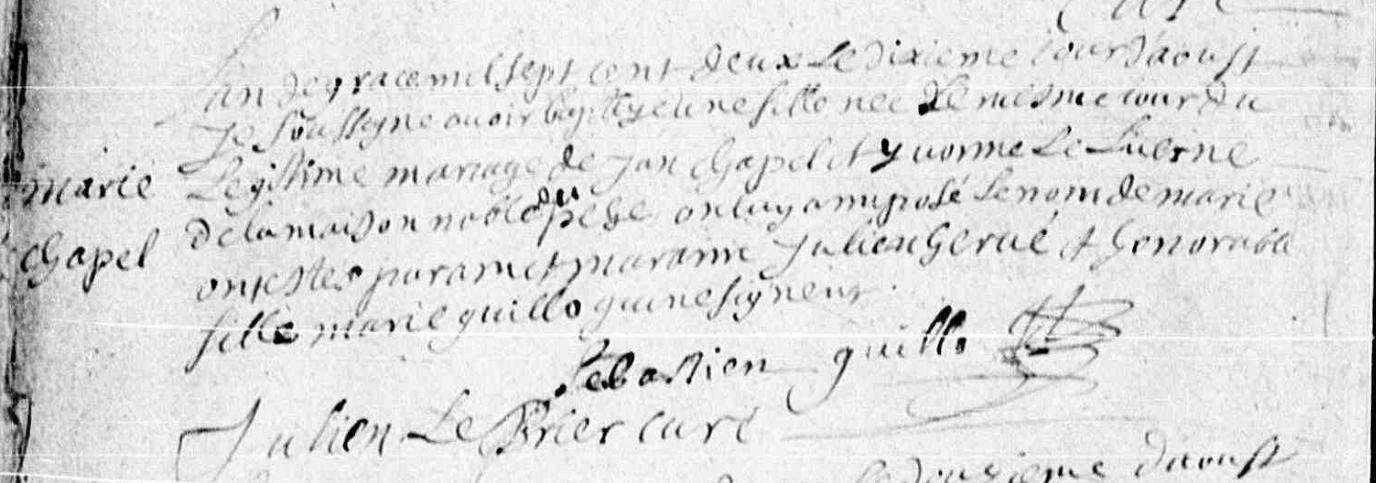 curé
Lan de grace mil sept cent deux Le dixieme iour d'aoust
Je soussigne auoir baptizé une fille nee Le mesme iour du
marie
Legitime mariage de Jan Chapel et yuonne Le Luerne
de la maison noble du on luy a imposé Le nom de marie
Chapel
ont estes parain et maranne Julien Gerué et honorable
fille marie guillo qui ne signent
Sebastien guillo
Julien Le Brier curé
Le dousieme d'aoust